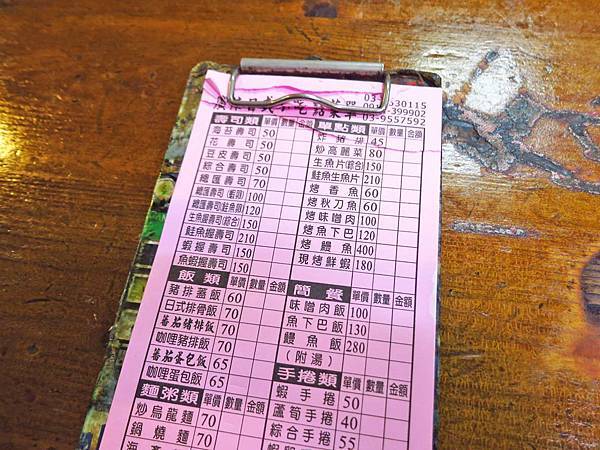 壽司類 單價 數量 金額
海苔壽司 50
花壽司 50
豆皮壽司 50
綜合壽司 50
總匯壽司 70
總匯壽司(蝦卵) 100
總匯壽司(鮭魚類) 120
生魚握壽司(綜合) 150
鮭魚握壽司 210
蝦握壽司 150
魚蝦握壽司 150
飯類 單價 數量 金額
豬排蓋飯 60
日式排骨飯 70
蕃茄豬排飯 70
咖哩豬排飯 70
蕃茄蛋包飯 65
咖哩蛋包飯 65
麵粥類 單價 數量 金額
炒烏龍麵 70
鍋燒麵 70
03-9557592
單點類 單價 數量 金額
炸豬排 45
炒高麗菜 80
生魚片(綜合) 150
鮭魚生魚片 210
烤香魚 60
烤秋刀魚 60
烤味噌肉 100
烤魚下巴 120
烤鰻魚 400
現烤鮮蝦 180
簡餐 單價 數量 金額
味噌肉飯 100
魚下巴飯 130
鰻魚飯 280
(附湯)
手捲類 單價 數量 金額
蝦手捲 50
蘆筍手捲 40
綜合手捲 55